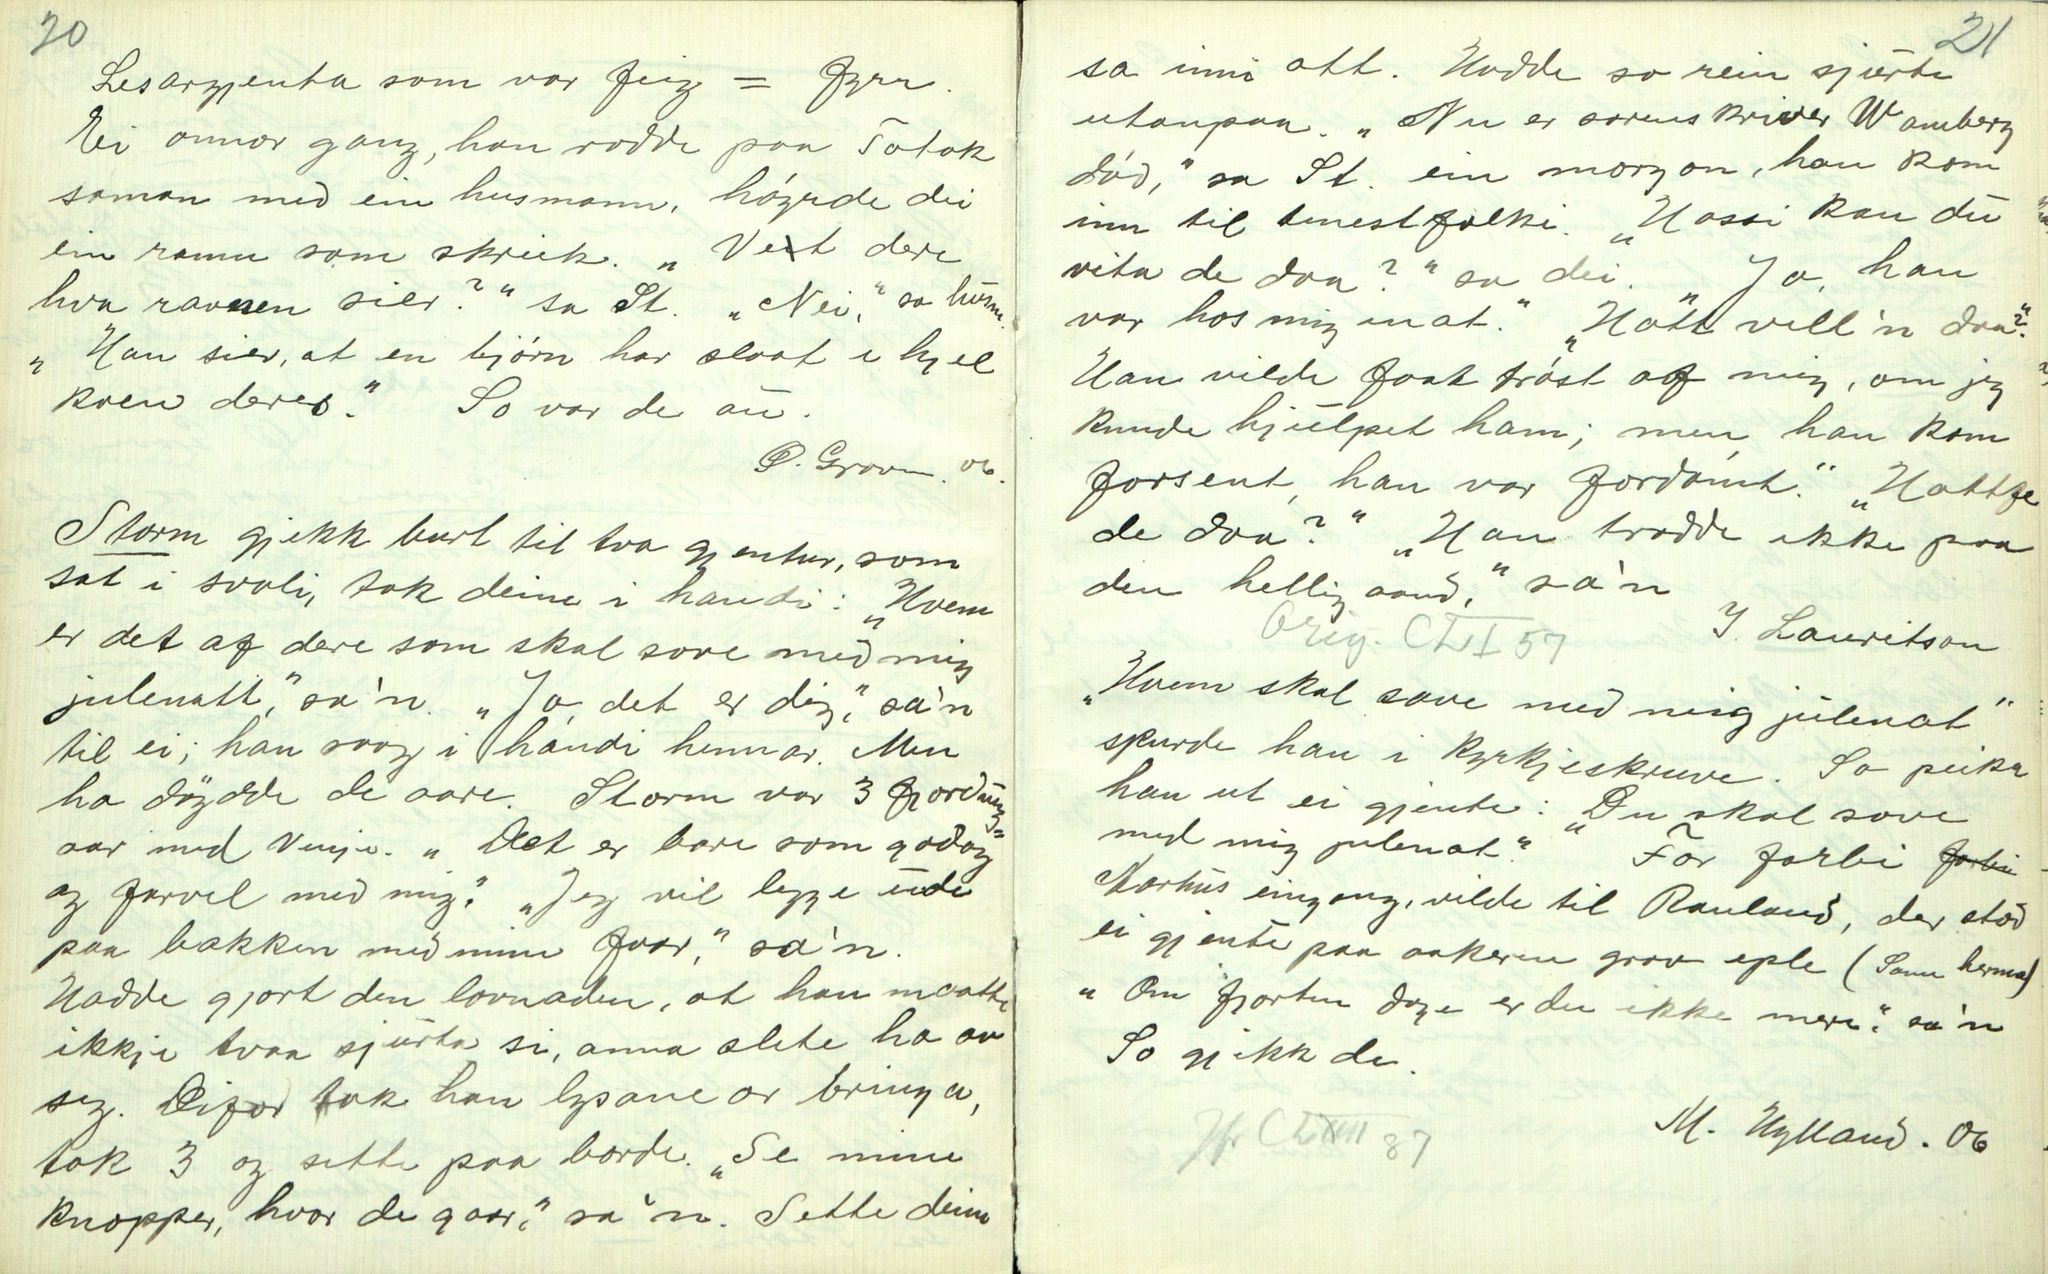 20
Lesargjenta som var feig = fyrr.
Ei annor gang, han rodde paa Totak
saman med ein husmann, høyrde dei
ein ramn som skreik. „Veit dere
hva ravnen sier?“ sa St. „Nei,“ sa husm.
„Han sier, at en bjørn har slaat i hjel
kuen deres.“ So var de au.
O. Groven. 06.
Storm gjekk burt til tva gjentur, som
sat i svali, tok deime i handi: „Hvem
er det af dere som skal sove med mig
julenatt,“ sa'n. „Ja, det er dig,“ sa'n
til ei; han saag i handi hennar. Men
ho døydde de aare. Storm var 3 fjordung-
aar med Vinje. „Det er bare som godag
og farvel med mig.“ „Jeg vil legge ude
paa bakken med mine faar,“ sa'n.
Hadde gjort den lovnaden, at han maatte
ikkje tvaa sjurta si, anna slete ha av
seg. Difor tok han lysane or bringa,
tok 3 og sette paa borde. „Se mine
knopper, hvor de gaar,“ sa'n. Sette deim
21
sa inni att. Hadde so rein sjurte
utanpaa. „Nu er sorenskriver Wamberg
død,“ sa St. ein morgon, han kom
inn til tenestfolki. „Hossi kan du
vita de daa?“ sa dei. „Jo, han
var hos mig inat.“ „Hott vill'n daa?“
Han vilde faat trøst af mig, om jeg
kunde hjulpet ham; men han kom
forsent, han var fordømt.“ „Hott fe
de daa?“ „Han trodde ikke paa
den hellig aand,“ sa'n
J. Lauritson
Orig. CLI 57
„Hvem skal sove med meig julenat“
spurde han i kyrkjeskruve. So peika
han ut ei gjente: „Du skal sove
med mig julenat.“ For forbi forbi
Markus eingong, vilde til Rauland, der stod
ei gjente paa aakeren grov eple (Sann herma)
„Om fjorten dage er du ikke mere,“ sa'n
So gjekk de.
M. Hylland. 06
Jfr CLXIII 87